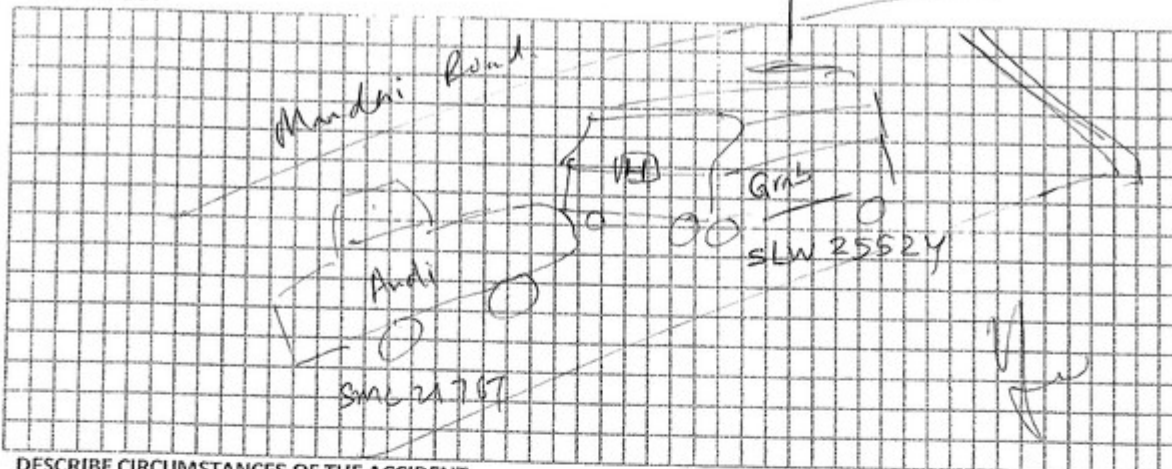 Mandai Road
VH
Grab
SLW 2552Y
Audi
DESCRIBE CIRCUMSTANCES OF THE ACCIDENT